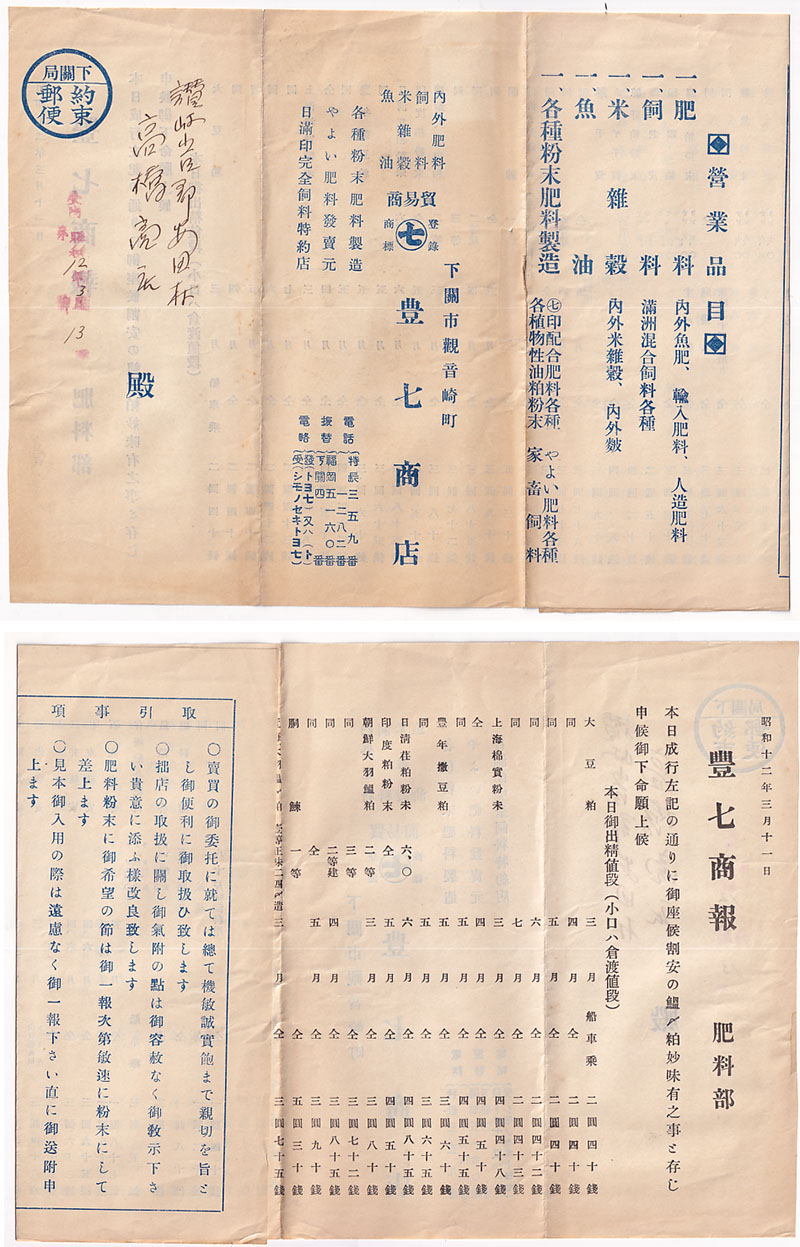 ◈營業品目◈
一、肥料 內外魚肥、輸入肥料、人造肥料
一、飼料 滿洲混合飼料各種
一、米雜穀 內外米雜穀、內外麩
一、魚油
一、各種粉末肥料製造 ㊆印配合肥料各種 やよい肥料各種
各植物性油粕粉末 家畜飼料
下關市觀音崎町
內外肥料
飼料
米雜穀
魚油
貿易商
登錄
七
商標
豊七商店
各種粉末肥料製造
やよい肥料發賣元
日滿印完全飼料特約店
電話 特長三五九番
一二八二番
振替 福岡五一六〇番
下關四番
電略 (發)(トヨ七)又ハ(ト)
(受)(シモノセキトヨ七)
下關局
約束
郵便
高橋
殿
12 3 13
昭和十二年三月十一日
豊七商報 肥料部
本日成行左記の通りに御座候割安の鰮〆粕妙味有之事と存じ
申候御下命願上候
本日御出精値段(小口ハ倉渡値段)
大豆粕 三月 船車乘 二圓四十錢
同 四月 仝 二圓四十錢
同 五月 仝 二圓四十錢
同 六月 仝 二圓四十二錢
同 七月 仝 二圓四十三錢
上海棉實粉末 三月 仝 四圓四十八錢
仝 四月 仝 四圓五十錢
同 五月 仝 四圓五十五錢
豊年撒豆粕 三月 仝 三圓六十錢
同 五月 仝 三圓六十五錢
日清荏粕粉末 六、〇 六月 仝 四圓八十五錢
印度粕粉末 仝 五月 仝 四圓五十錢
朝鮮大羽鰮粕 二等 三月 仝 三圓八十錢
同 三等 三月 仝 三圓七十二錢
同 二等建 四月 仝 三圓八十五錢
同 仝 五月 仝 三圓九十錢
胴鰊 一等 仝 五圓三十錢
三月 仝 三圓七十五錢
取引事項
〇賣買の御委托に就ては總て機敏誠實飽まで親切を旨と
し御便利に御取扱ひ致します
〇拙店の取扱に關し御氣附の點は御容赦なく御敎示下さ
い貴意に添ふ樣改良致します
〇肥料粉末に御希望の節は御一報次第敏速に粉末にして
差上ます
〇見本御入用の際は遠慮なく御一報下さい直に御送附申
上ます